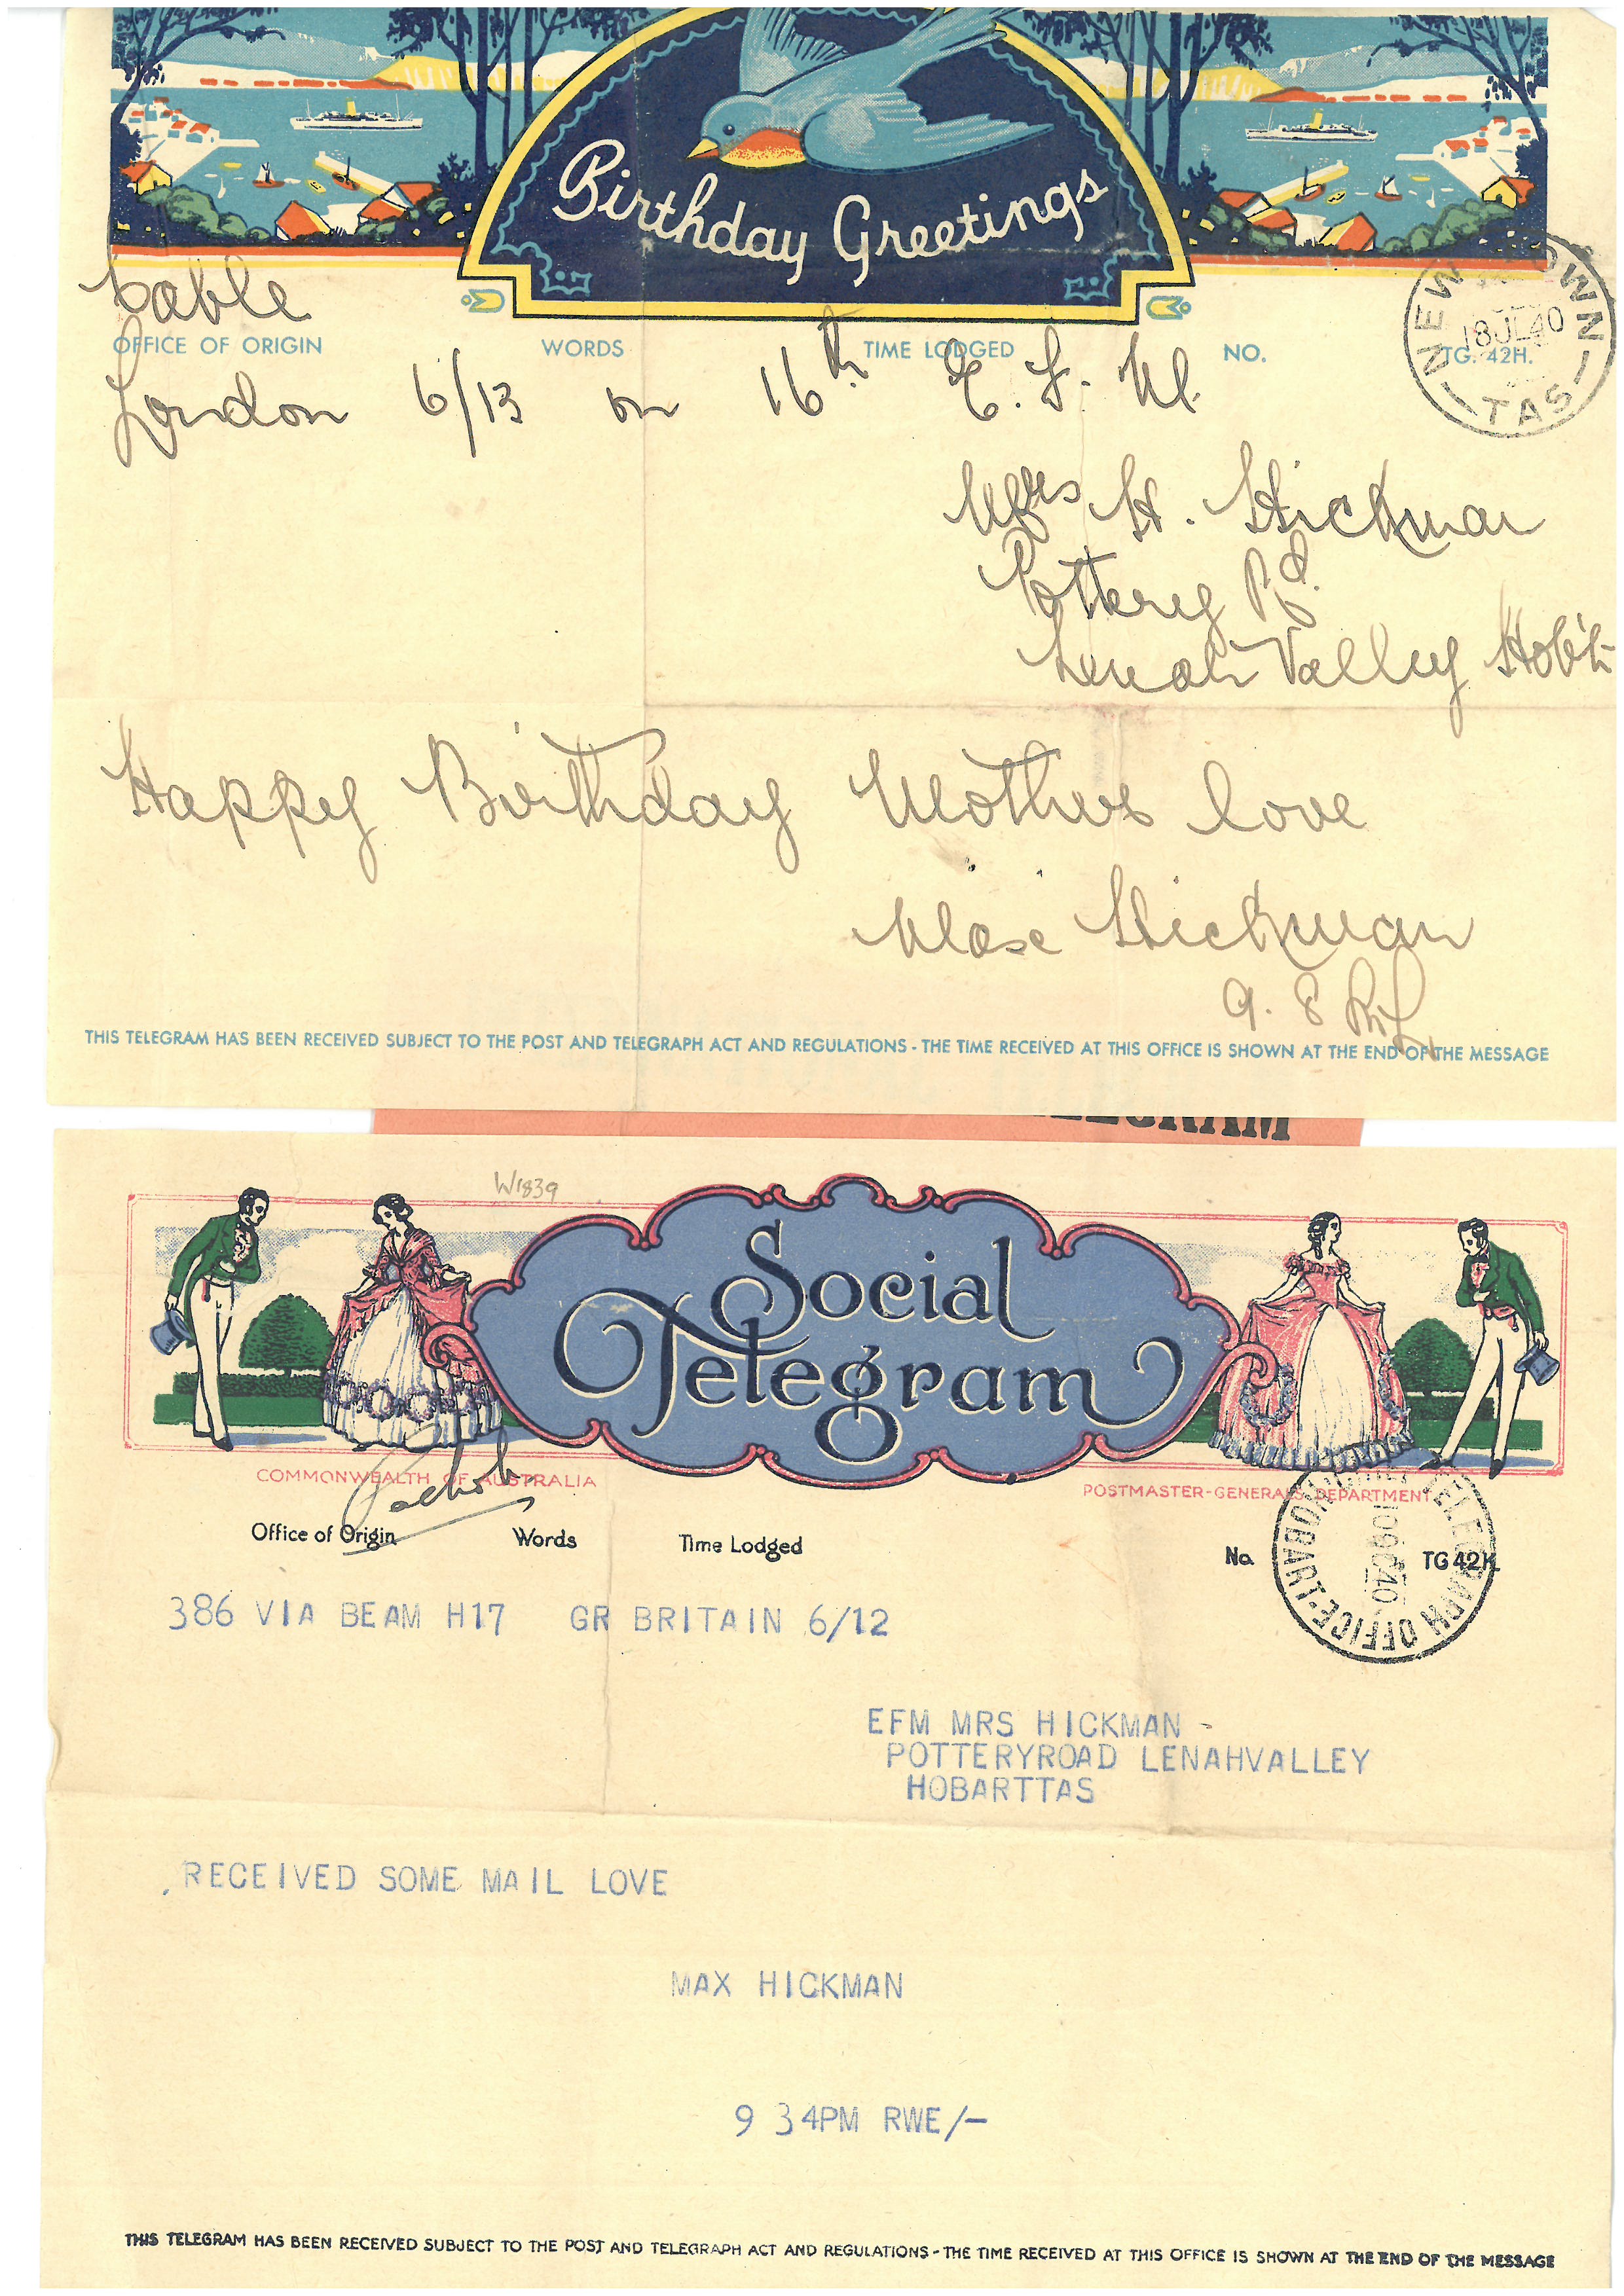 Birthday Greetings
Cable
OFFICE OF ORIGIN WORDS TIME LODGED NO. TG. 42H.
NEW TOWN
18 JL 40
TAS
London 6/13 on 16th E. F. M.
Mrs H. Hickman
Pottery Rd.
Lenah Valley Hob't
Happy Birthday Mother love
Max Hickman
THIS TELEGRAM HAS BEEN RECEIVED SUBJECT TO THE POST AND TELEGRAPH ACT AND REGULATIONS - THE TIME RECEIVED AT THIS OFFICE IS SHOWN AT THE END OF THE MESSAGE
W1839
Social
Telegram
COMMONWEALTH OF AUSTRALIA POSTMASTER-GENERAL'S DEPARTMENT
Office of Origin Words Time Lodged No. TG 42K
TELEGRAPH OFFICE-HOBART
386 VIA BEAM H17 GR BRITAIN 6/12
EFM MRS HICKMAN -
POTTERYROAD LENAHVALLEY
HOBARTTAS
RECEIVED SOME MAIL LOVE
MAX HICKMAN
9 34PM RWE/-
THIS TELEGRAM HAS BEEN RECEIVED SUBJECT TO THE POST AND TELEGRAPH ACT AND REGULATIONS - THE TIME RECEIVED AT THIS OFFICE IS SHOWN AT THE END OF THE MESSAGE